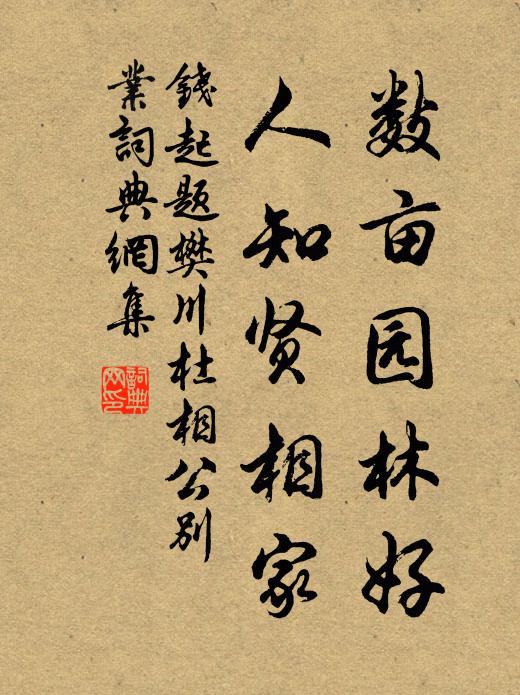 数亩园林好
人知贤相家
錢起題樊川杜相公别
業詞典網集
詞典
网印